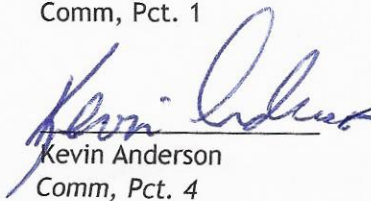 Comm, Pct. 1
Kevin Anderson
Kevin Anderson
Comm, Pct. 4